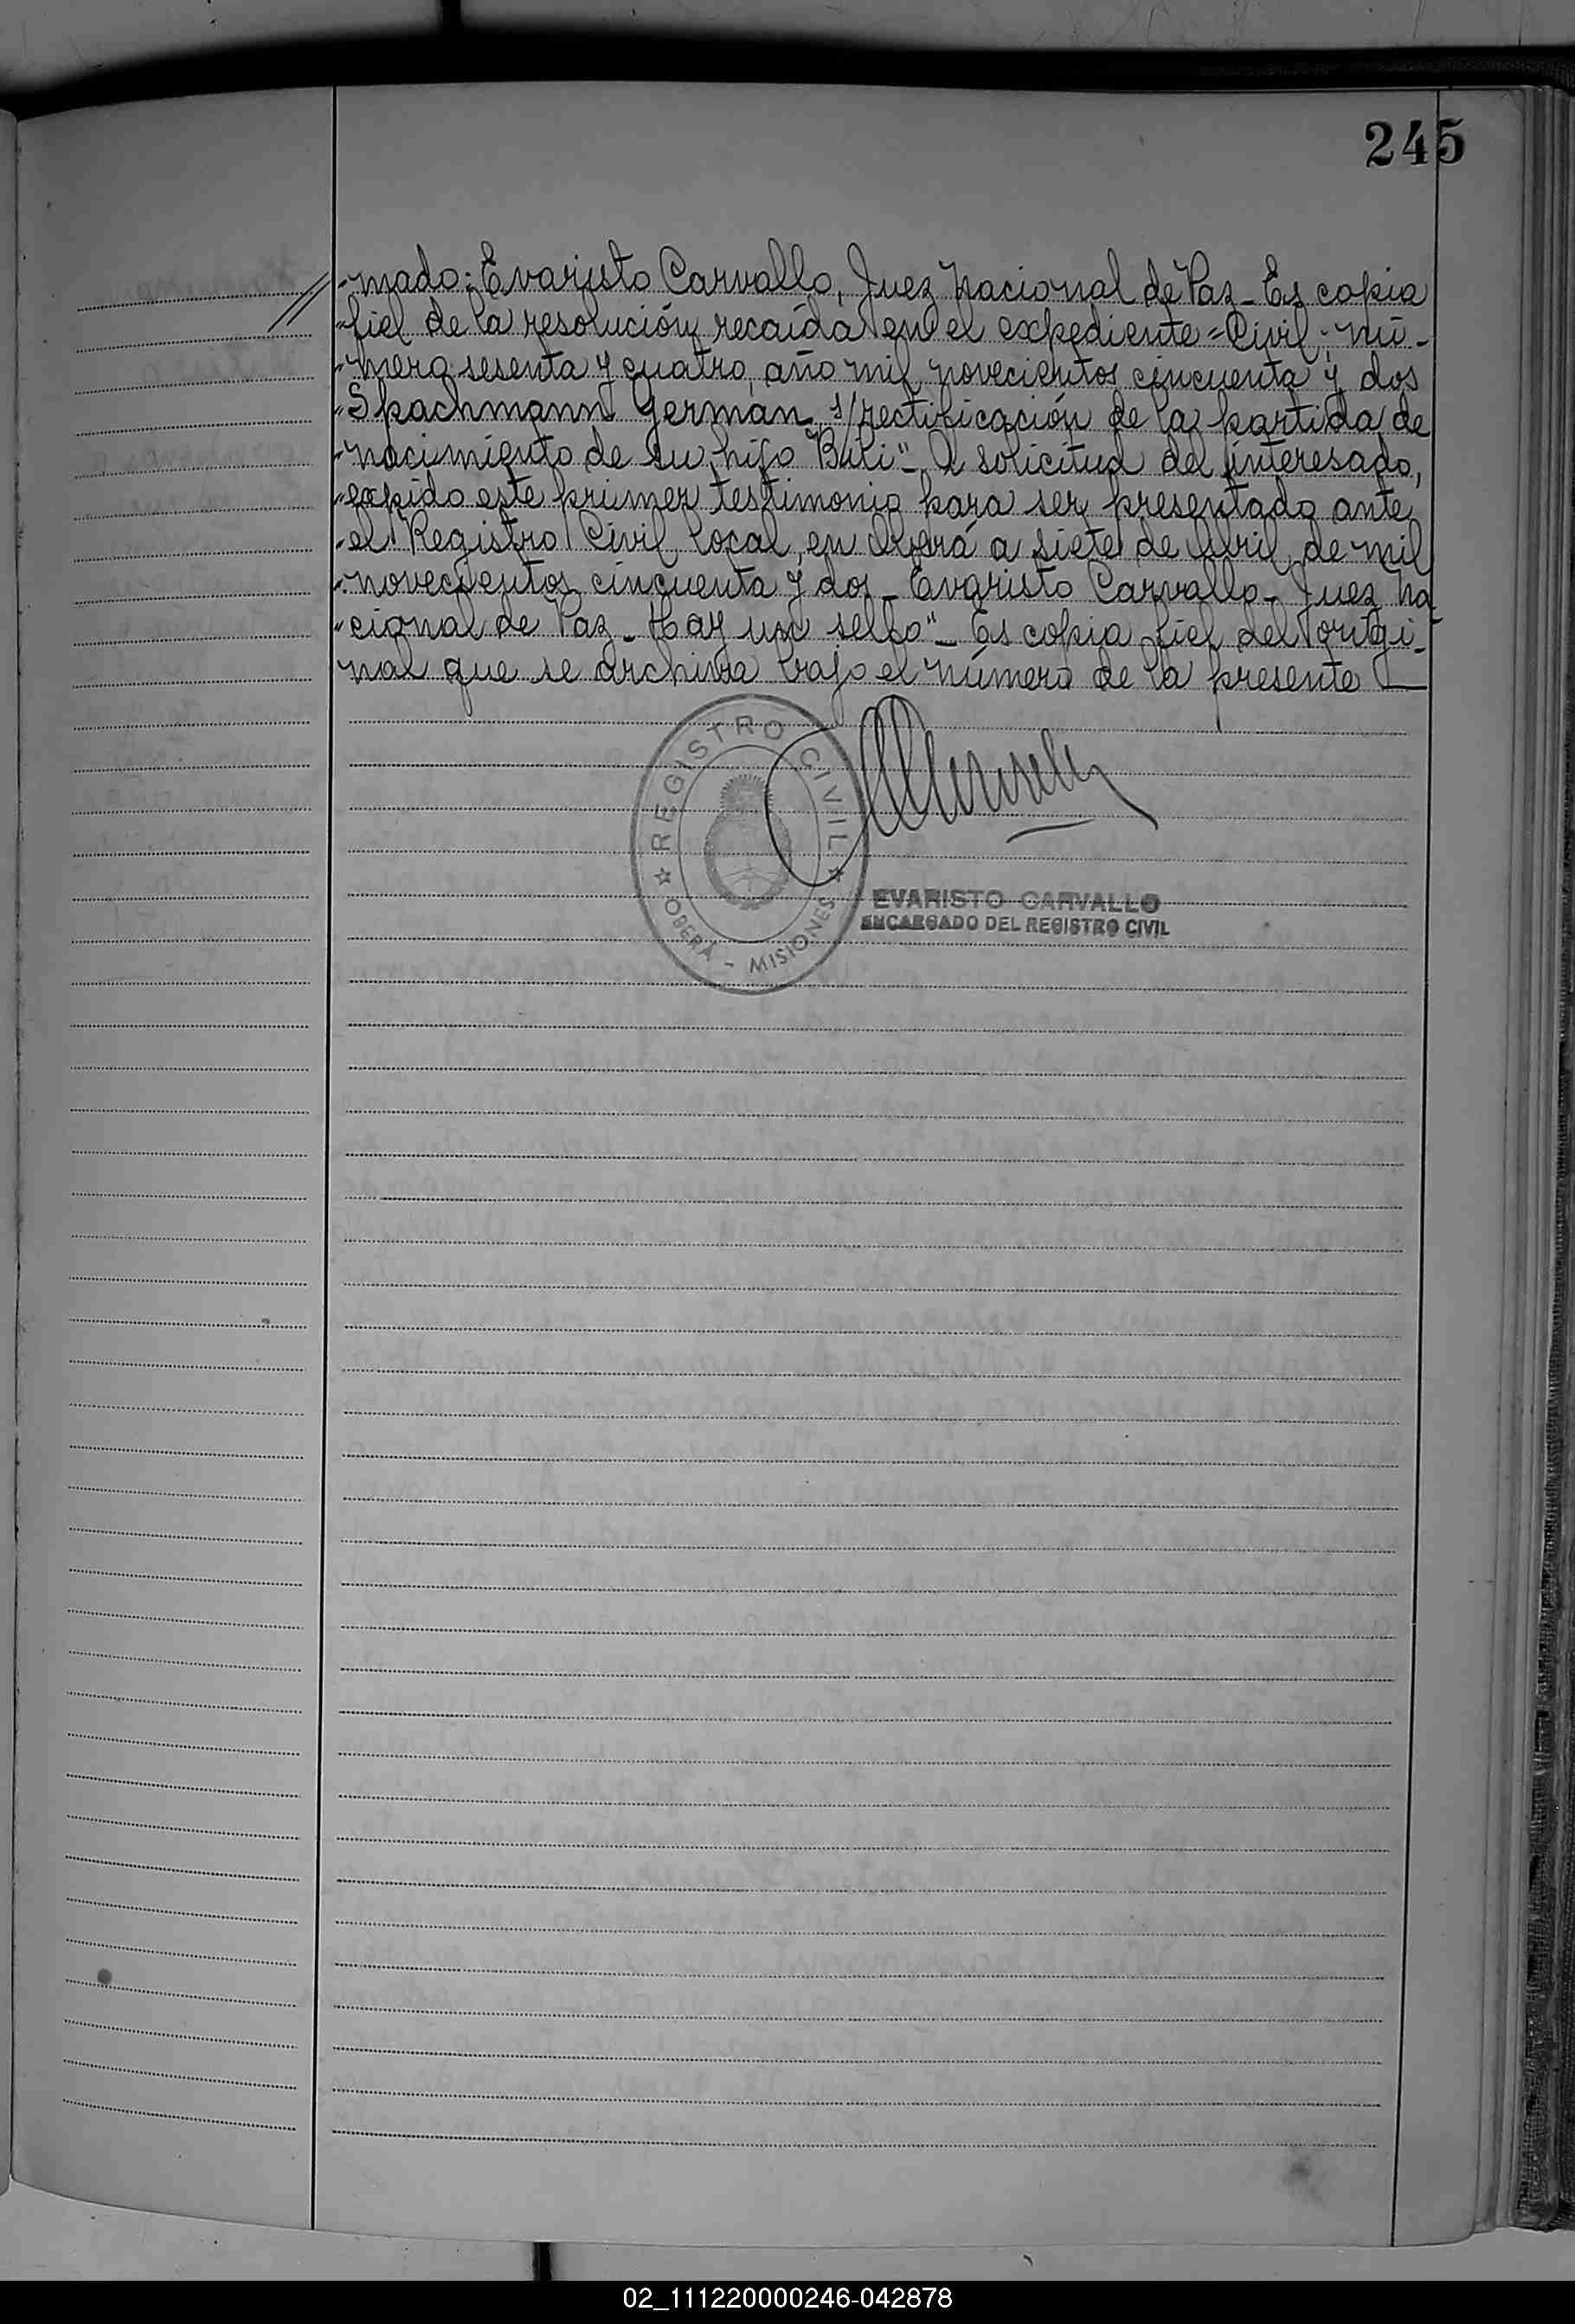 245
"mado: Evaristo Carvallo, Juez Nacional de Paz_ Es copia
"fiel de la resolución recaída en el expediente = Civil; nú-
"mero sesenta y cuatro, año mil novecientos cincuenta y dos
"Spachmann Germán, s/rectificación de la partida de
"nacimiento de su hijo Buli"_ A solicitud del interesado,
"expido este primer testimonio para ser presentado ante
"el Registro Civil local, en Oberá a siete de Abril de mil
"novecientos cincuenta y dos_ Evaristo Carvallo_ Juez Na-
"cional de Paz_ Hay un sello"_ Es copia fiel del origi-
nal que se archiva bajo el número de la presente —
REGISTRO CIVIL
OBERÁ - MISIONES
EVARISTO CARVALLO
ENCARGADO DEL REGISTRO CIVIL
02_111220000246-042878